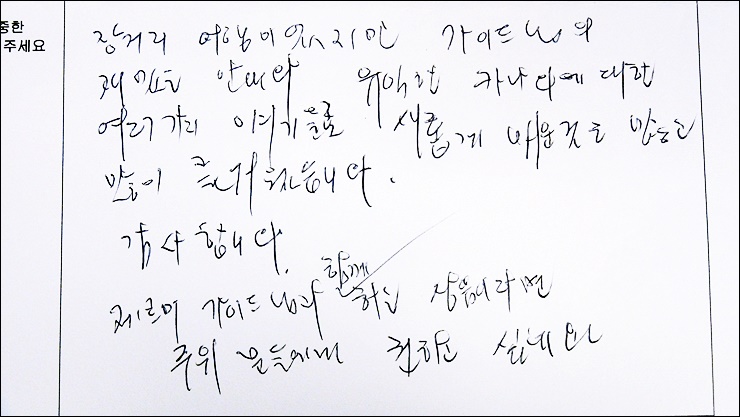 중한
주세요
장거리 여행이었지만 가이드님의
재밌는 안내와 유익한 캐나다에 대한
여러가지 이야기들로 새롭게 배운것도 많고
즐거웠습니다.
감사합니다.
제르미 가이드님과 함께 하는 상품이라면
주위 분들에게 권하고 싶네요